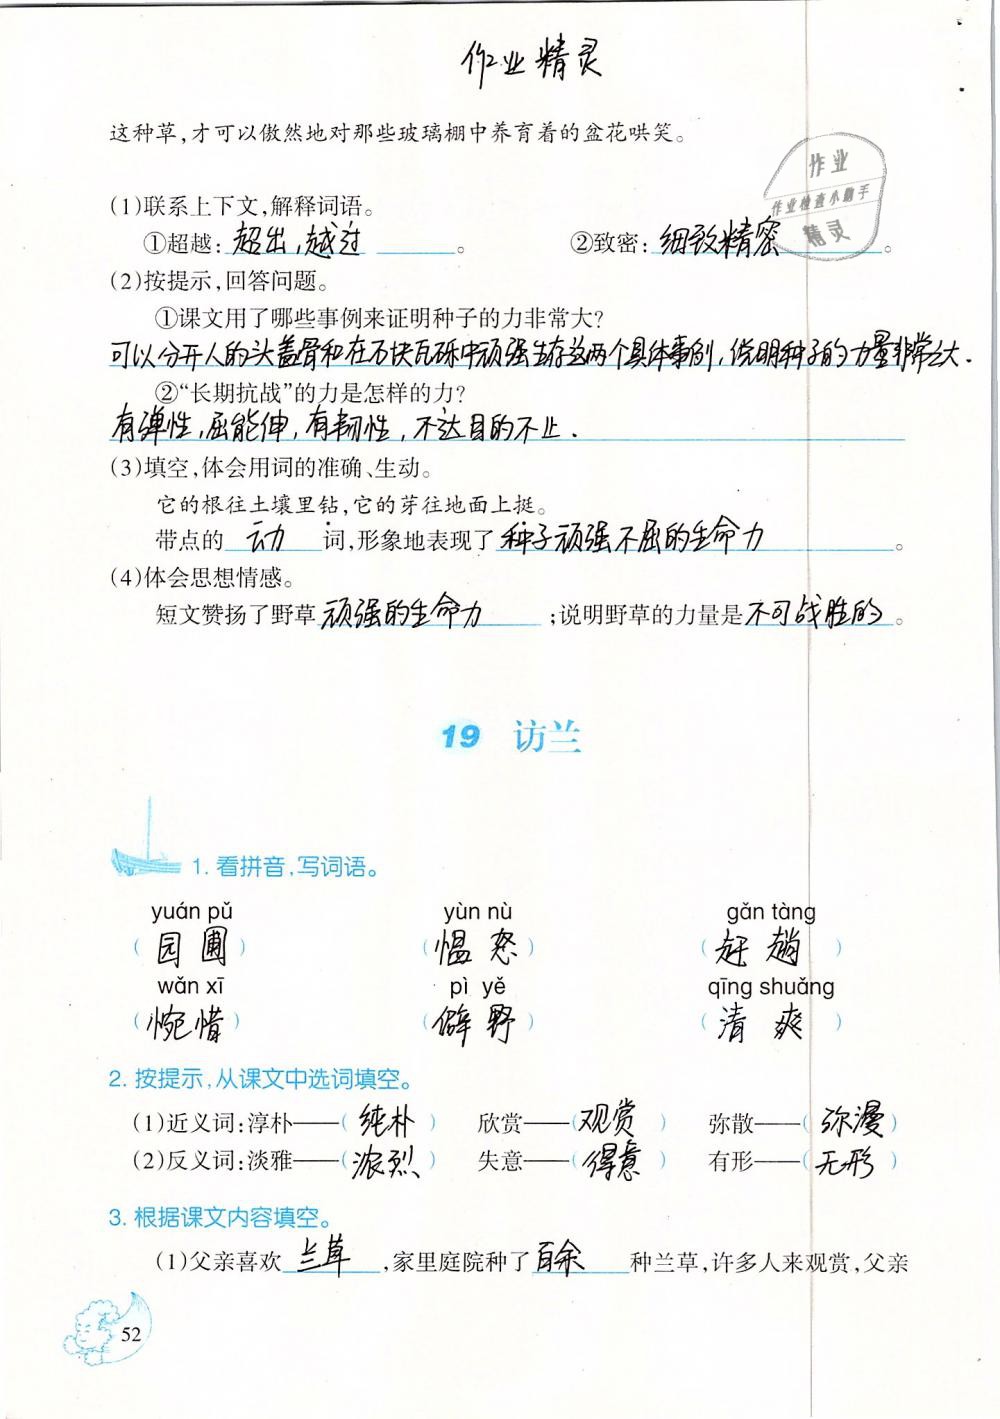 作业精灵
这种草,才可以傲然地对那些玻璃棚中养育着的盆花哄笑。
作业
作业检查小助手
精灵
(1)联系上下文,解释词语。
①超越:超出,越过。 ②致密:细致精密。
(2)按提示,回答问题。
①课文用了哪些事例来证明种子的力非常大?
可以分开人的头盖骨和在石块瓦砾中顽强生存这两个具体事例,说明种子的力量非常之大.
②“长期抗战”的力是怎样的力?
有弹性,屈能伸,有韧性,不达目的不止.
(3)填空,体会用词的准确、生动。
它的根往土壤里钻,它的芽往地面上挺。
带点的 动 词,形象地表现了 种子顽强不屈的生命力 。
(4)体会思想情感。
短文赞扬了野草 顽强的生命力 ;说明野草的力量是 不可战胜的 。
19 访兰
1. 看拼音,写词语。
yuán pǔ yùn nù gǎn tàng
(园圃) (愠怒) (赶趟)
wǎn xī pì yě qīng shuǎng
(惋惜) (僻野) (清爽)
2. 按提示,从课文中选词填空。
(1)近义词:淳朴——(纯朴) 欣赏——(观赏) 弥散——(弥漫)
(2)反义词:淡雅——(浓烈) 失意——(得意) 有形——(无形)
3. 根据课文内容填空。
(1)父亲喜欢 兰草 ,家里庭院种了 百余 种兰草,许多人来观赏,父亲
52